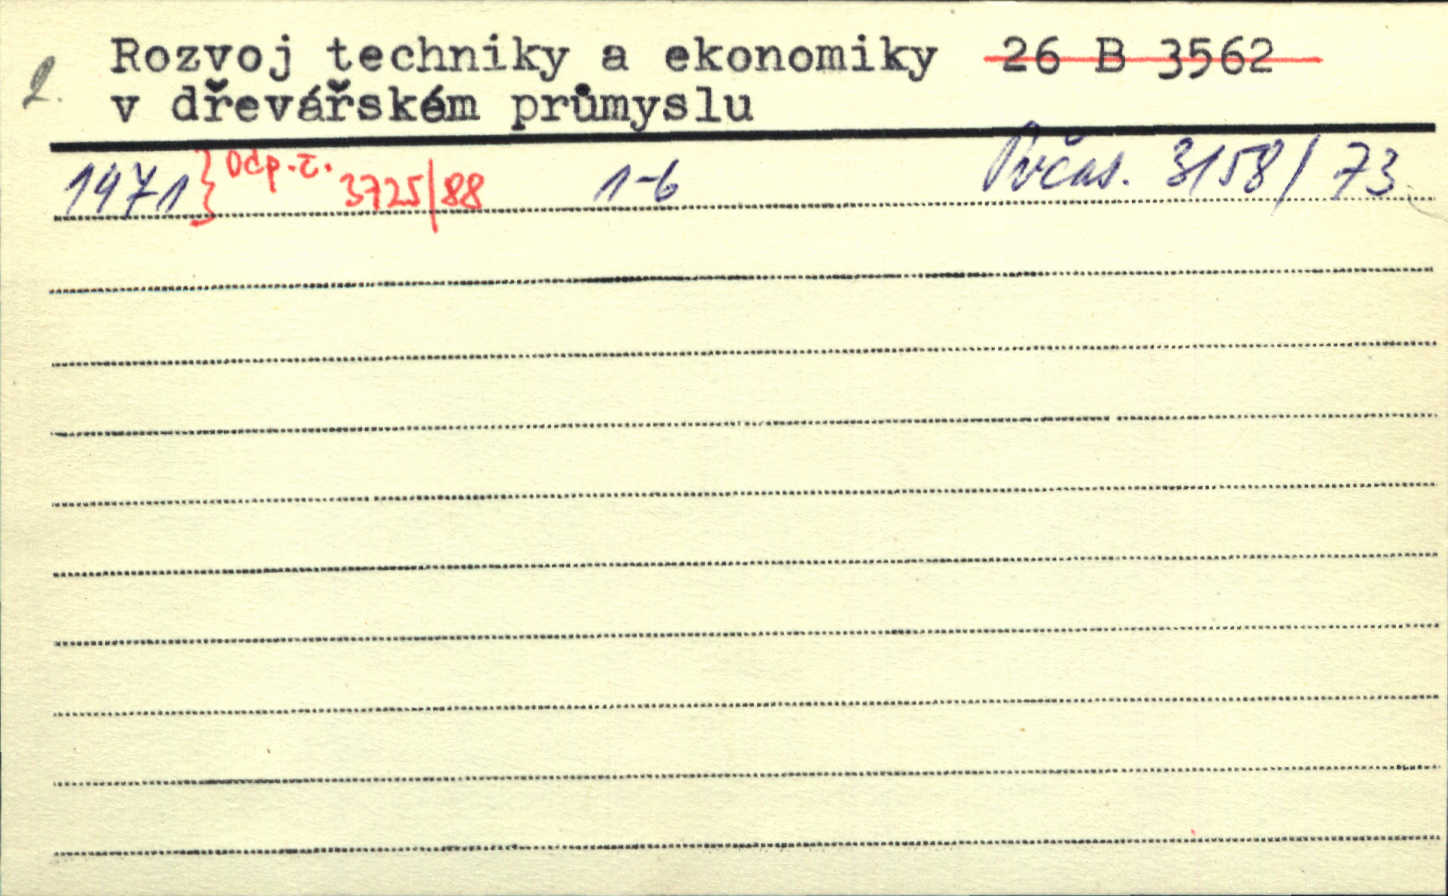 2. Rozvoj techniky a ekonomiky 26 B 3562
v dřevářském průmyslu
1971} Odp. č. 3725/88 1-6 Počas. 3158/73